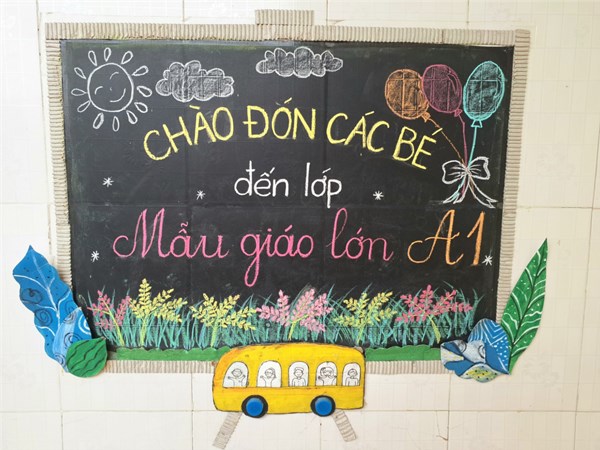 CHÀO ĐÓN CÁC BÉ
đến lớp
Mẫu giáo lớn A1